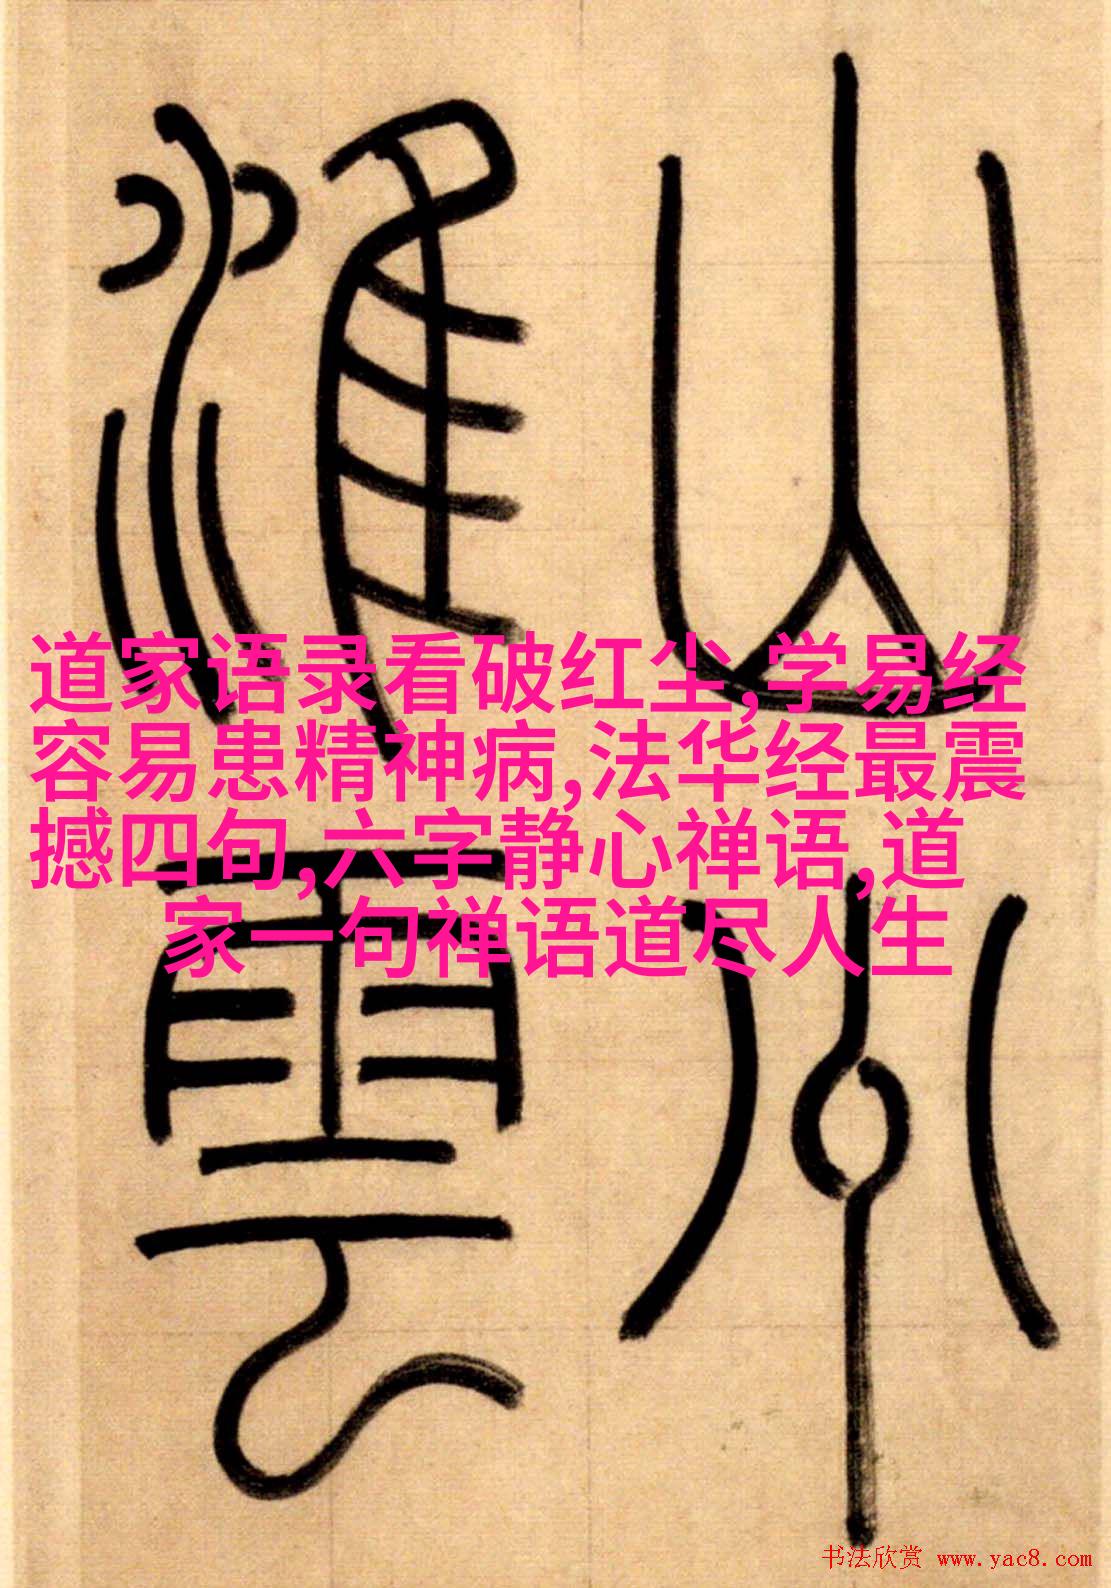 山小
淮雲
道家语录看破红尘,学易经
容易患精神病,法华经最震
撼四句,六字静心禅语,道
家一句禅语道尽人生
书法欣赏 www.yac8.com